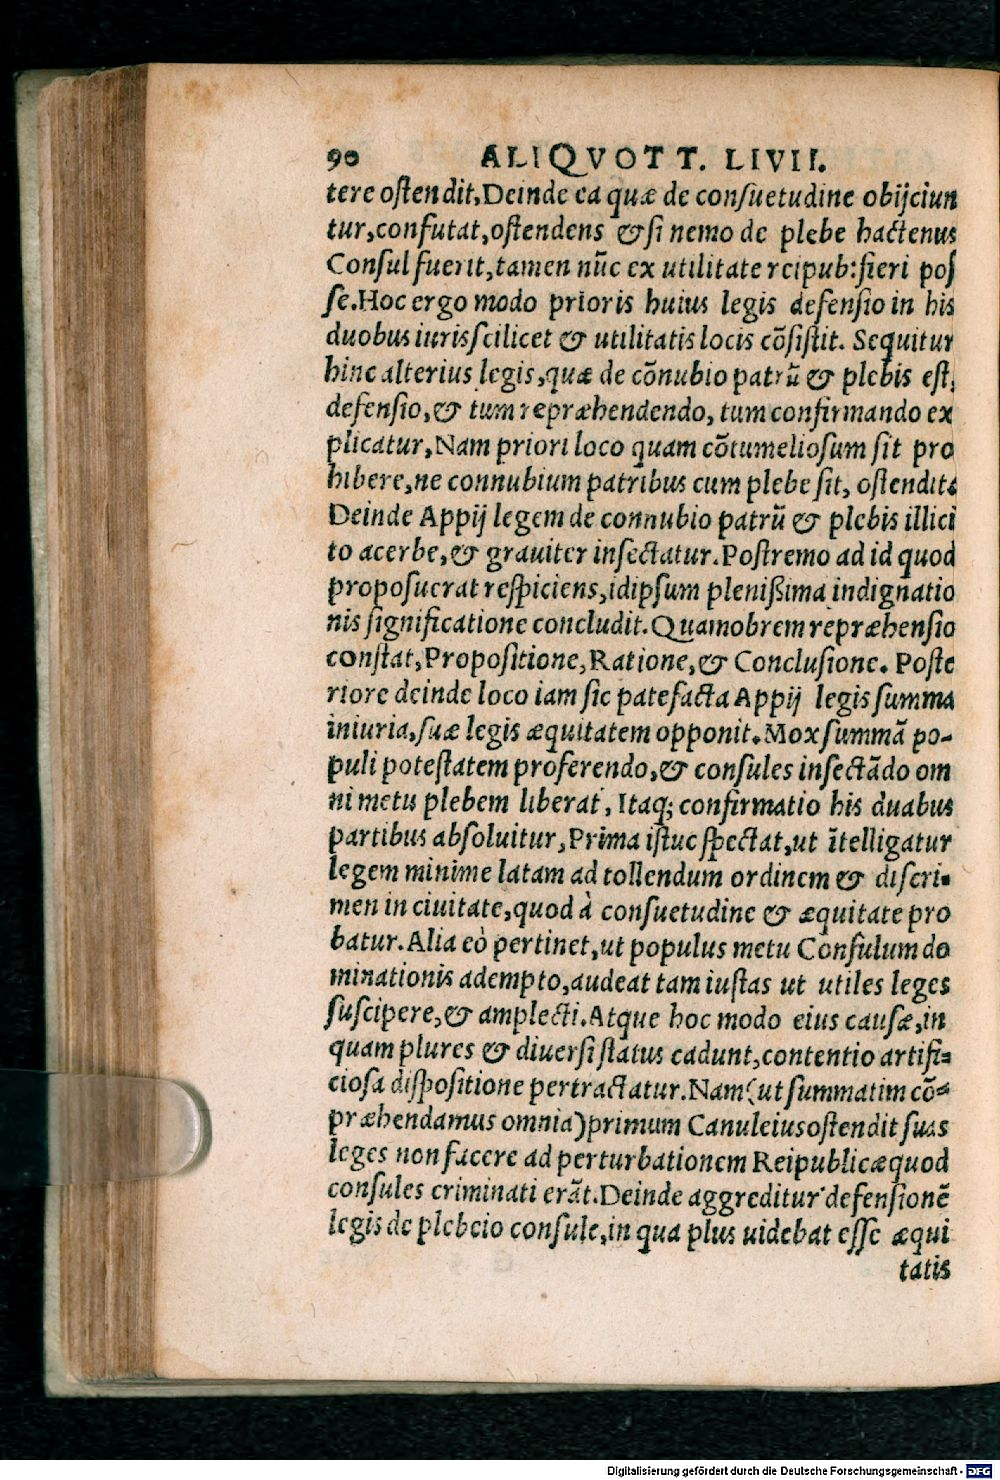 90 ALIQVOT T. LIVII.
tere oſtendit. Deinde ea quæ de conſuetudine obijciun
tur, confutat, oſtendens & ſi nemo de plebe hactenus
Conſul fuerit, tamen nūc ex utilitate reipub: fieri poſ
ſe. Hoc ergo modo prioris huius legis defenſio in his
duobus iuris ſcilicet & utilitatis locis cōſiſtit. Sequitur
hinc alterius legis, quæ de cōnubio patrū & plebis eſt,
defenſio, & tum repræhendendo, tum confirmando ex
plicatur, Nam priori loco quam cōtumelioſum ſit pro
hibere, ne connubium patribus cum plebe ſit, oſtendit.
Deinde Appij legem de connubio patrū & plebis illici
to acerbe, & grauiter inſectatur. Poſtremo ad id quod
propoſuerat reſpiciens, idipſum pleniſsima indignatio
nis ſignificatione concludit. Quamobrem repræhenſio
conſtat, Propoſitione, Ratione, & Concluſione. Poſte
riore deinde loco iam ſic patefacta Appij legis ſumma
iniuria, ſuæ legis æquitatem opponit. Mox ſummā po-
puli poteſtatem proferendo, & conſules inſectādo om
ni metu plebem liberat, Itaq; confirmatio his duabus
partibus abſoluitur, Prima iſtuc ſpectat, ut ītelligatur
legem minime latam ad tollendum ordinem & diſcri-
men in ciuitate, quod à conſuetudine & æquitate pro
batur. Alia eò pertinet, ut populus metu Conſulum do
minationis adempto, audeat tam iuſtas ut utiles leges
ſuſcipere, & amplecti. Atque hoc modo eius cauſæ, in
quam plures & diuerſi ſtatus cadunt, contentio artifi-
cioſa diſpoſitione pertractatur. Nam (ut ſummatim cō-
præhendamus omnia) primum Canuleius oſtendit ſuas
leges non facere ad perturbationem Reipublicæ quod
conſules criminati erāt. Deinde aggreditur defenſionē
legis de plebeio conſule, in qua plus uidebat eſſe æqui
tatis
Digitalisierung gefördert durch die Deutsche Forschungsgemeinschaft - DFG